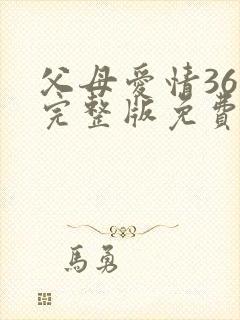 父母愛情36
完整版免費
馬勇